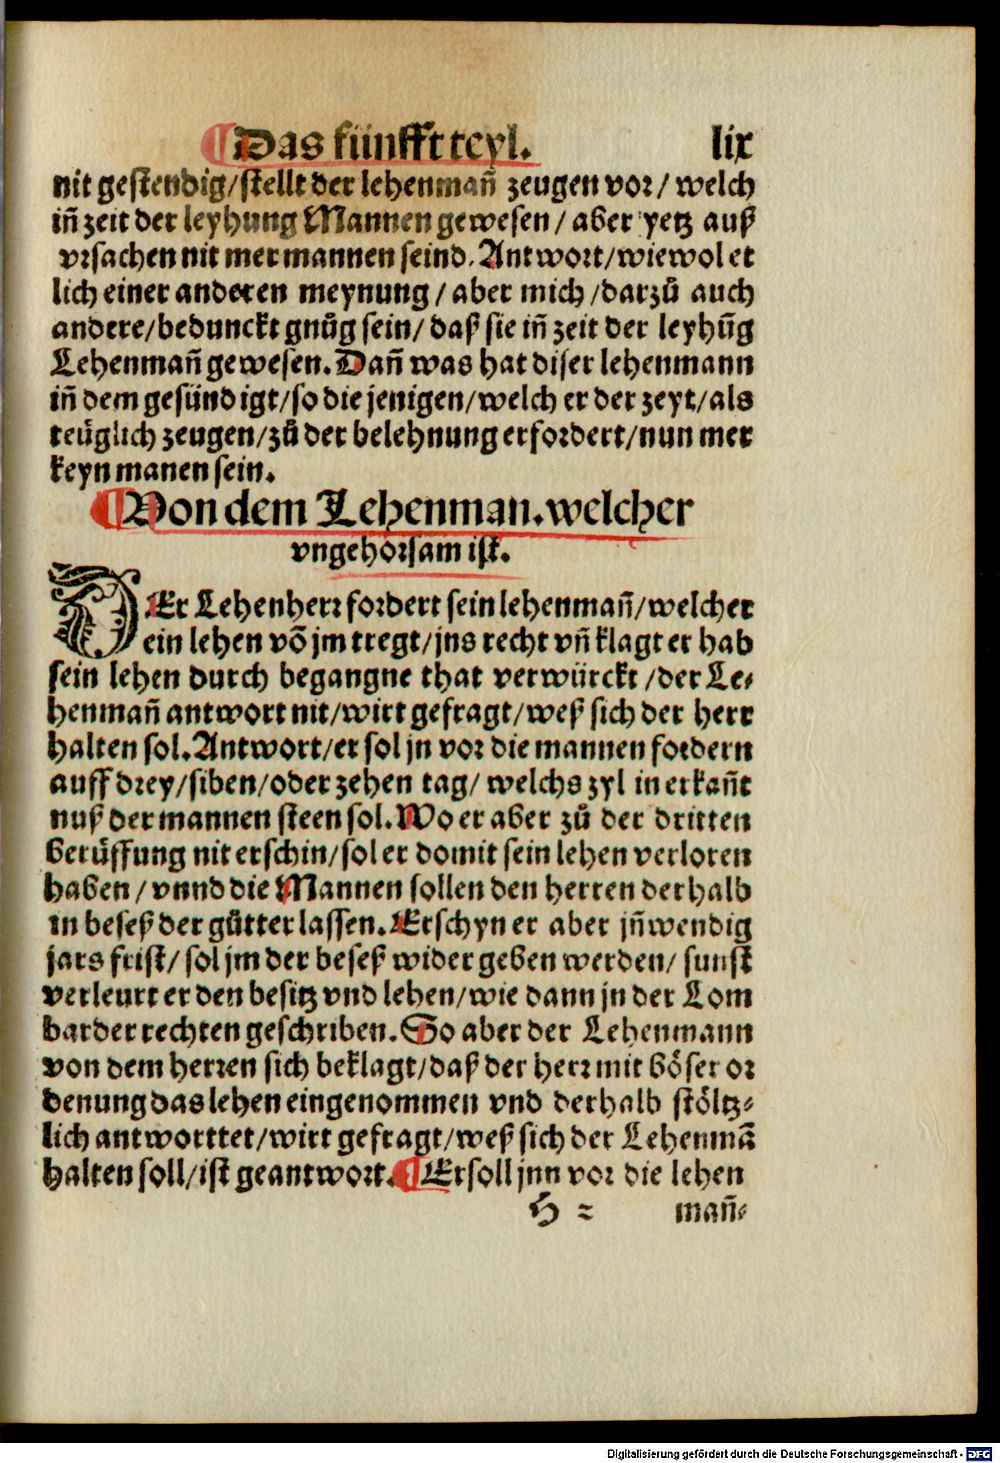 Das fünfft teyl. lix
nit gestendig/stellt der lehenman̄ zeugen vor/ welch
in̄ zeit der leyhung Mannen gewesen/ aber yetz auß
vrsachen nit mer mannen seind. Antwort/wiewol et
lich einer anderen meynung/ aber mich/darzů auch
andere/bedunckt gnůg sein/ daß sie in̄ zeit der leyhūg
Lehenman̄ gewesen. Dan̄ was hat diser lehenmann
in̄ dem gesündigt/so die jenigen/welch er der zeyt/als
teüglich zeugen/zů der belehnung erfordert/nun mer
keyn manen sein.
Von dem Lehenman. welcher
vngehorsam ist.
DEr Lehenherr fordert sein lehenman̄/welcher
ein lehen vō jm tregt/jns recht vn̄ klagt er hab
sein lehen durch begangne that verwürckt/der Le⸗
henman̄ antwort nit/wirt gefragt/weß sich der herr
halten sol. Antwort/er sol jn vor die mannen fordern
auff drey/siben/oder zehen tag/ welchs zyl in erkan̄t
nuß der mannen steen sol. Wo er aber zů der dritten
berůffung nit erschin/sol er domit sein lehen verloren
haben/ vnnd die Mannen sollen den herren derhalb
in beseß der gůtter lassen. Erschyn er aber jn̄wendig
jars frist/ sol jm der beseß wider geben werden/ sunst
verleurt er den besitz vnd lehen/wie dann jn der Lom
barder rechten geschriben. So aber der Lehenmann
von dem herren sich beklagt/daß der herr mit böser or
denung das lehen eingenommen vnd derhalb stöltz⸗
lich antworttet/wirt gefragt/weß sich der Lehenmā
halten soll/ist geantwort. Er soll jnn vor die lehen
H 2 man̄⸗
Digitalisierung gefördert durch die Deutsche Forschungsgemeinschaft - DFG